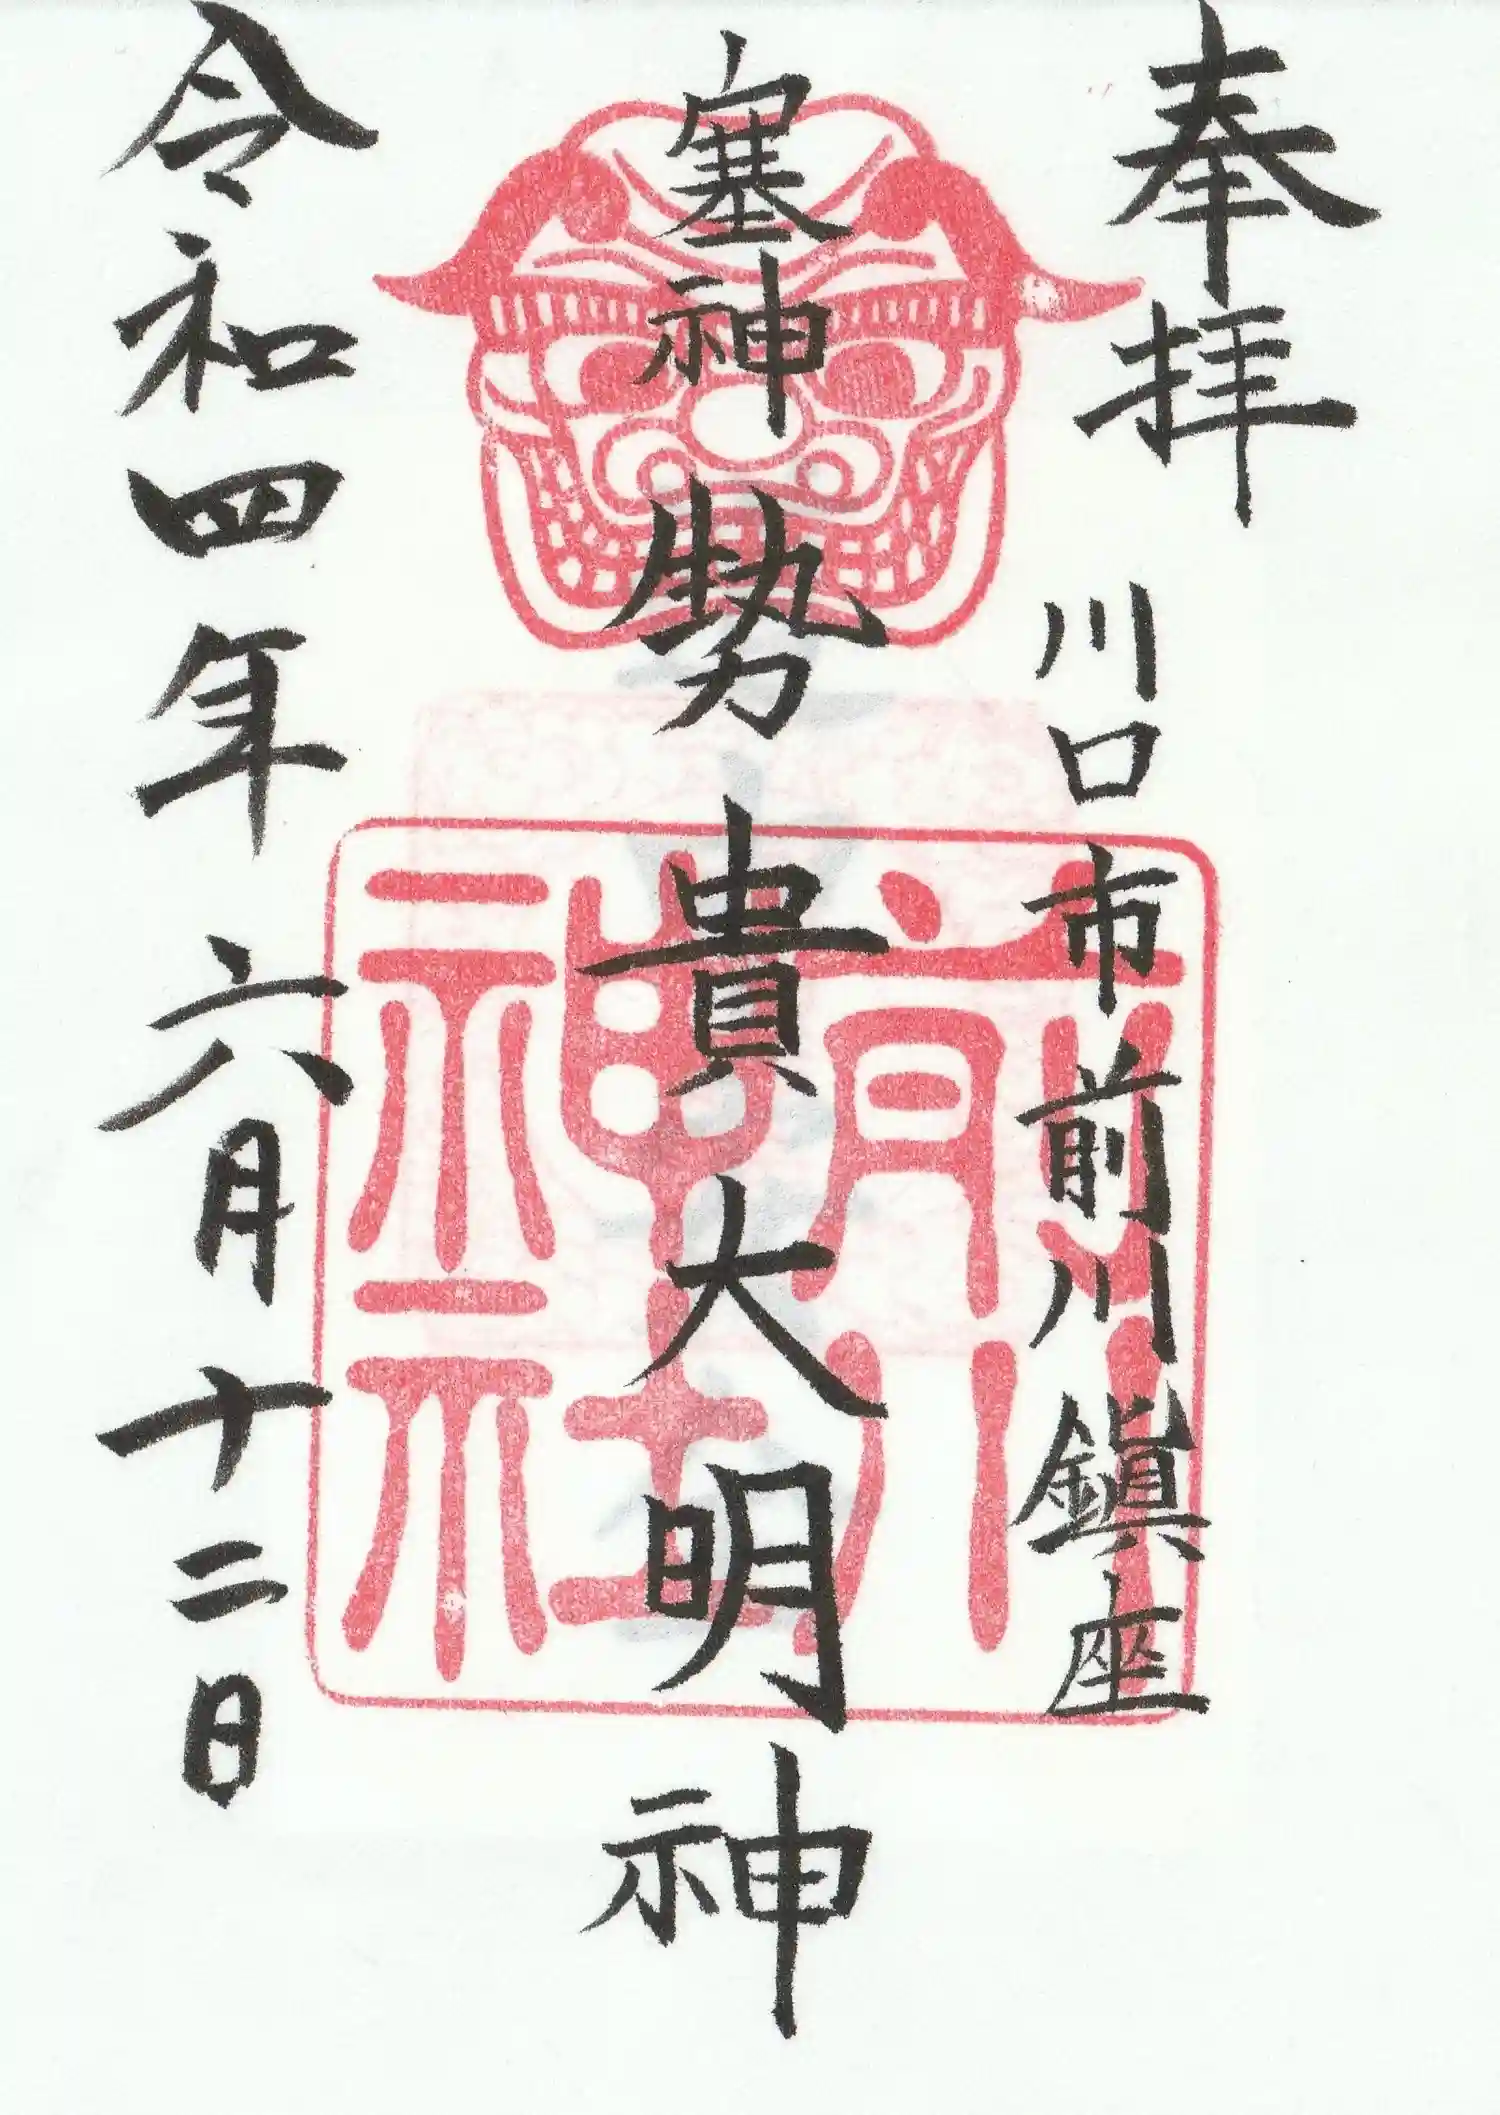 奉拝
川口市前川鎮座
塞神
勢貴大明神
令和四年六月十二日
前川神社